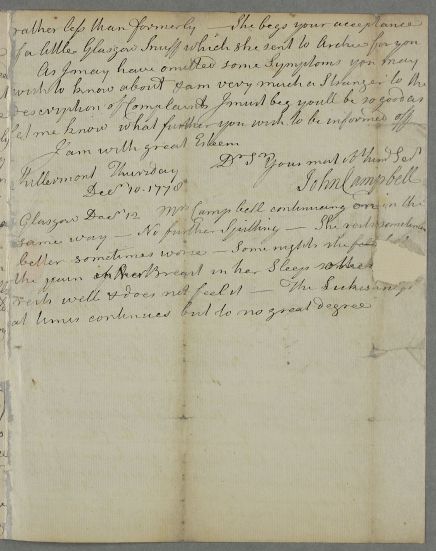 rather less than formerly — She begs your acceptance
of a little Glasgow Snuff which she sent to Archie for you
As I may have omitted some Symptoms you may
wish to know about & am very much a Stranger to the
description of Complaints I must beg you'll be so good as
let me know what further you wish to be informed off
I am with great Esteem
Dr Sr Your most Ob
Killermont Thursday
Decr 10. 1778
John Campbell
Glasgow Decr 12 Mrs Campbell continuing on in the
same way — No further Spitting — She rests sometimes
better sometimes worse — Some nights she feels
the pain in her Breast in her Sleep others
rests well & does not feel it — The Sickishness
at times continues but to no great degree